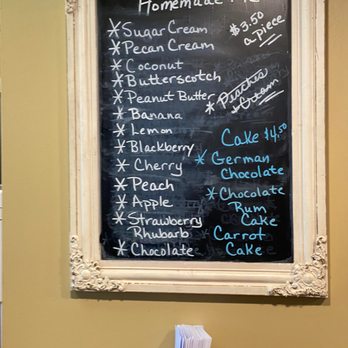 Homemade
$3.50
a piece
* Sugar Cream
* Pecan Cream
* Coconut
* Butterscotch
* Peanut Butter
* Banana
* Lemon
* Blackberry
* Cherry
* Peach
* Apple
* Strawberry
Rhubarb
* Chocolate
* Peaches
+ Cream
Cake $4.50
* German
Chocolate
* Chocolate
Rum
Cake
Carrot
Cake